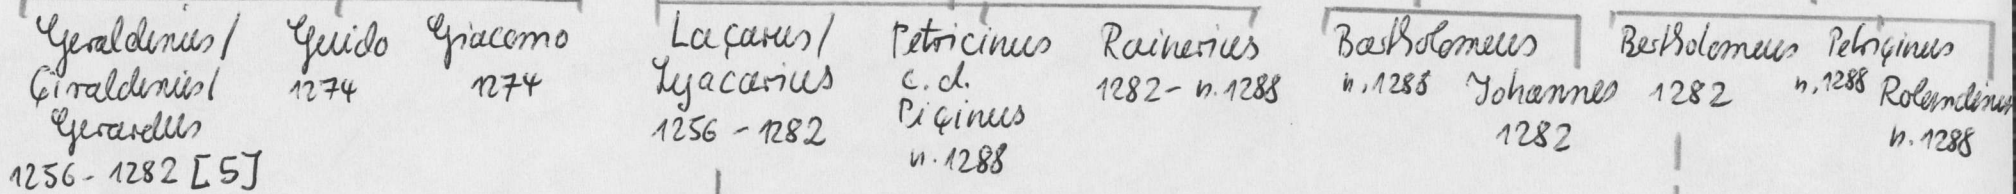 Geraldinus/
Çiraldinus/
Gerardus
1256 - 1282 [5]
Guido
1274
Giacomo
1274
Laçarus/
Lyacarius
1256 - 1282
Petricinus
c.d.
Piçinus
n. 1288
Rainerius
1282 - n. 1288
Bartholomeus
n. 1288
Johannes
1282
Bertholomeus
1282
Petriçinus
n. 1288
Rolandinus
n. 1288